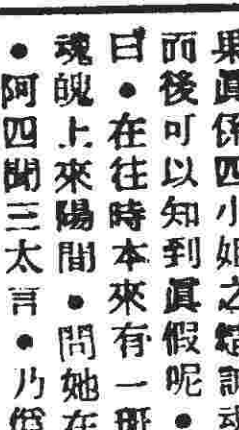 果眞係四小姐之
而後可以知到眞假呢●
曰●在往時本來有一班
魂魄上來陽間●問她在
●阿四聞三太言●乃